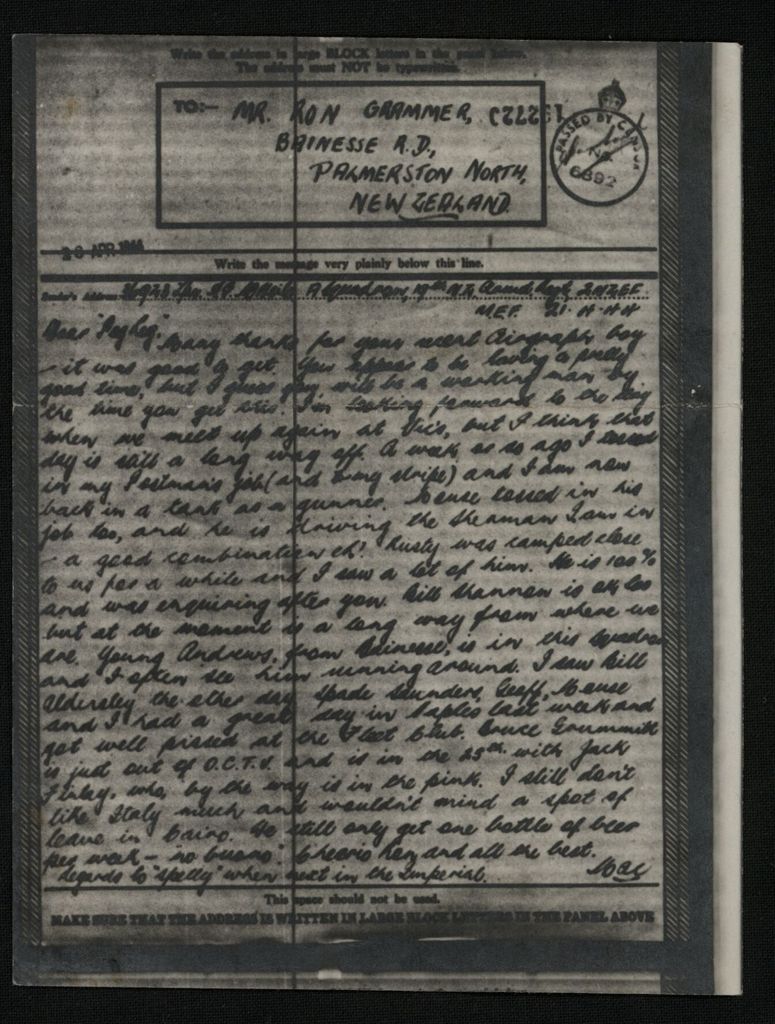 Write the address in large BLOCK letters in the panel below.
The address must NOT be typewritten.
TO:— MR. RON GRAMMER,
BAINESSE R.D.,
PALMERSTON NORTH,
NEW ZEALAND.
152720
PASSED BY CENSOR
No
6892
28 APR 1944
Write the message very plainly below this line.
Sender's Address A Squadron, 19th N.Z. Armd. Regt, 2NZEF
MEF. 21-4-44
Dear "Peg Leg" Many thanks for your recent Airgraph boy
— it was good to get. You appear to be having a pretty
good time, but I guess you will be a working man by
the time you get this. I'm looking forward to the day
when we meet up again at this, but I think that
day is still a long way off. A week or so ago I tossed
in my Postman's job (and a stripe) and I am now
back in a tank as a gunner. Mouse tossed in his
job too, and he is driving the Sherman I am in
— a good combination eh! Rusty was camped close
to us for a while and I saw a lot of him. He is 100%
and was enquiring after you. Bill Shannon is ok too
but at the moment is a long way from where we
are. Young Andrews, from Bainesse, is in this Squadron
and I often see him running around. I saw Bill
Aldersley the other day. Spade Saunders, Geoff, Mouse
and I had a great day in Naples last week and
got well pissed at the Fleet Club. Bruce Grummitt
is just out of O.C.T.U. and is in the 25th with Jack
Finlay, who by the way is in the pink. I still don't
like Italy much and wouldn't mind a spot of
leave in Cairo. We still only get one bottle of beer
per week — "no buono". Cheerio Ron, and all the best.
Regards to "Spelly" when next in the Imperial. Mac
This space should not be used.
MAKE SURE THAT THE ADDRESS IS WRITTEN IN LARGE BLOCK LETTERS IN THE PANEL ABOVE